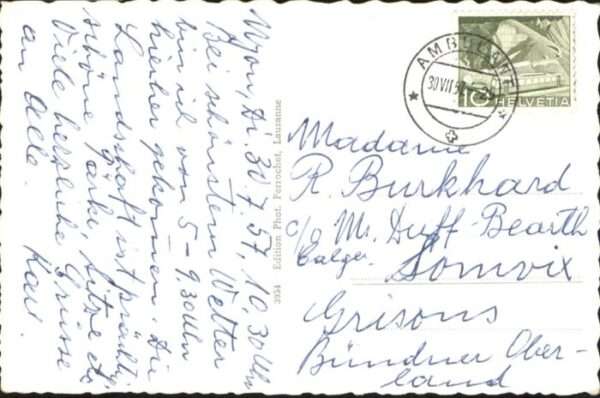 Nyon, Di. 30.7.57, 10.30 Uhr
Bei schönstem Wetter
bin ich von 5 - 9.30 Uhr
hierher gekommen. Die
Landschaft ist prächtig
schöne Parke, Sitze etc
Viele herzliche Grüsse
an Alle.
3954 Edition Phot. Perrochet, Lausanne
AMBULANT
30 VII 57
10 HELVETIA
Madame
R. Burkhard
c/o Mr. Duff-Bearth
Somvix
Grisons
Bündner Ober-
land